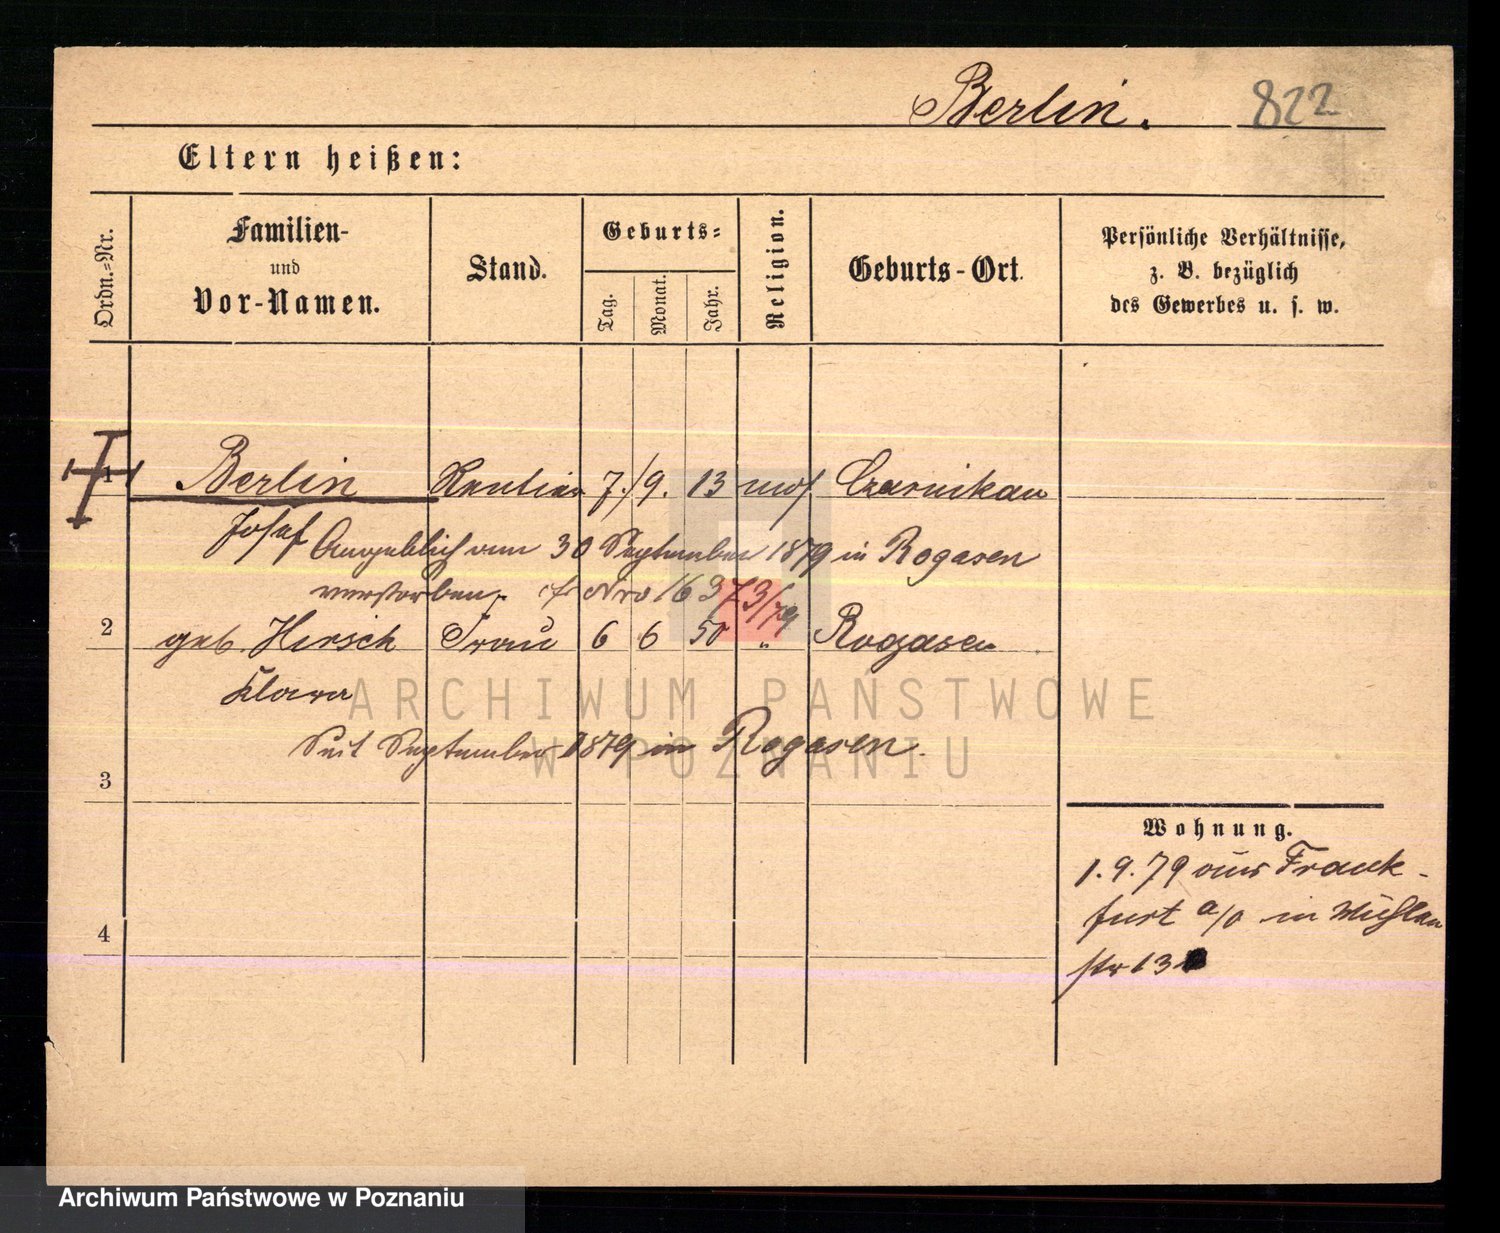 Berlin. 822
Eltern heißen:
Ordn.=Nr.
Familien-
und
Vor-Namen.
Stand.
Geburts=
Tag.
Monat.
Jahr.
Religion.
Geburts-Ort.
Persönliche Verhältnisse,
z. B. bezüglich
des Gewerbes u. s. w.
1 Berlin Rentier 7./9. 13 mos. Czarnikau
Josef Angeblich am 30 September 1879 in Rogasen
verstorben. cf Nro 16373/79
2 geb. Hirsch Frau 6 6 50 " Rogasen
Klara
ARCHIWUM PAŃSTWOWE
Seit September 1879 in Rogasen.
W POZNANIU
3
Wohnung.
1.9.79 aus Frank-
furt a/o in Mühlen
4
str 13
Archiwum Państwowe w Poznaniu